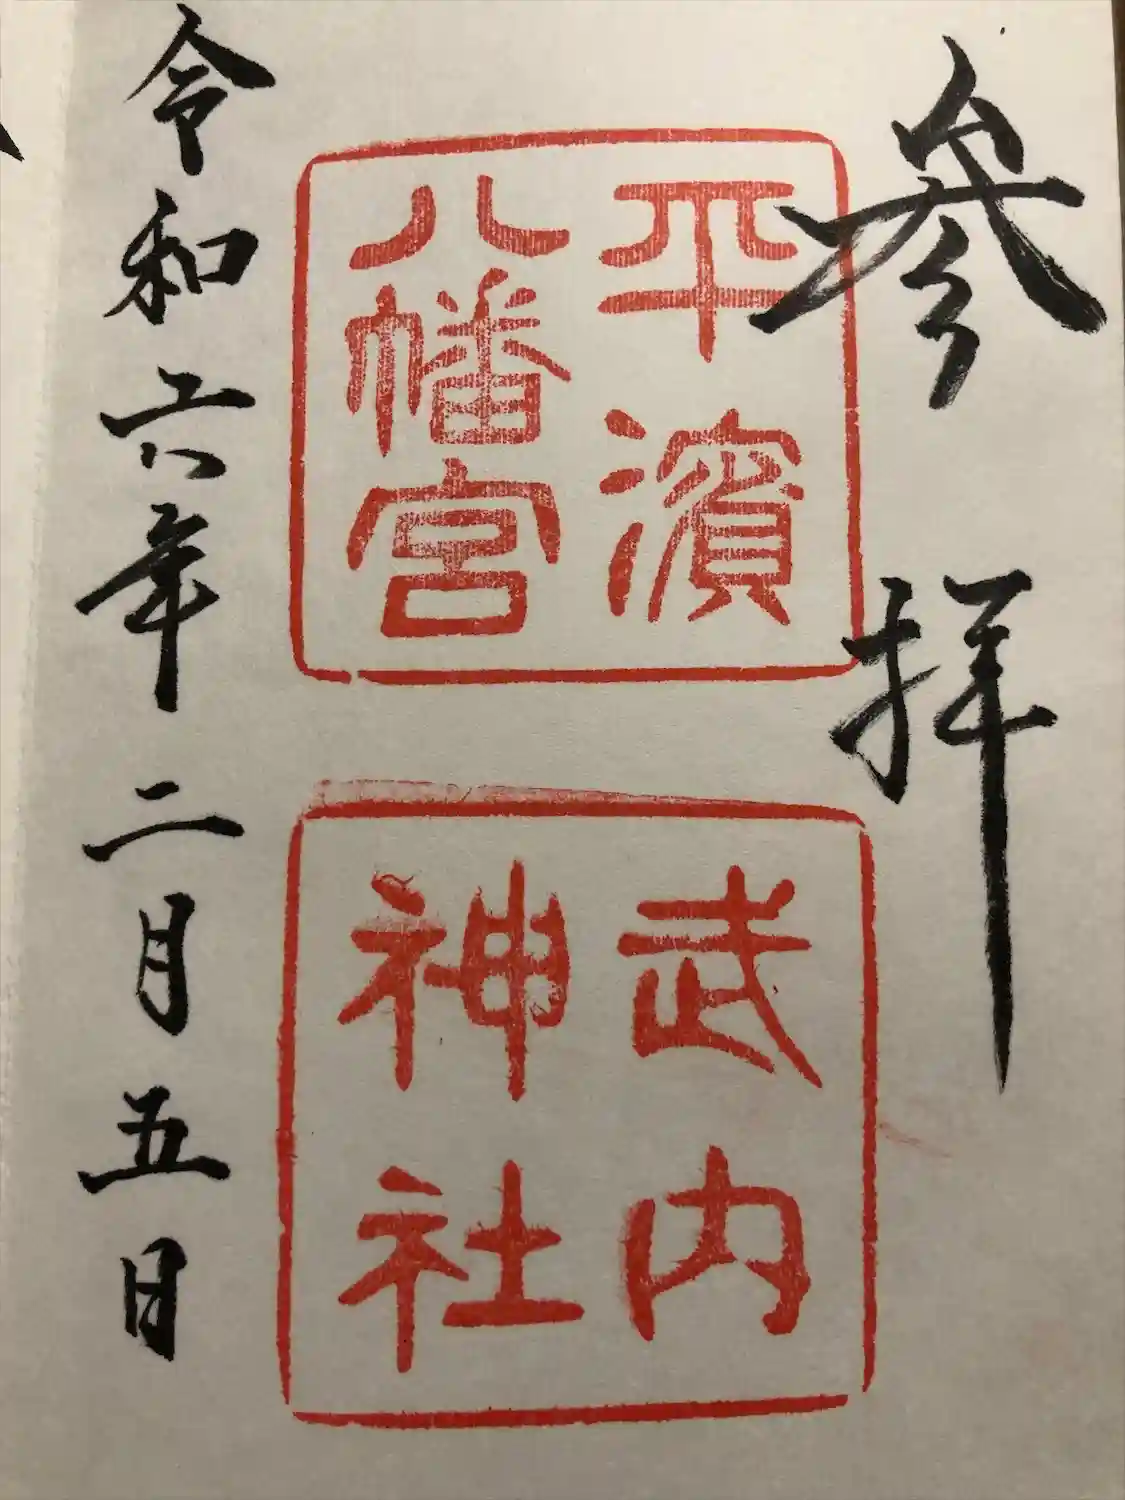 参拝
平濱
八幡宮
武内
神社
令和六年二月五日